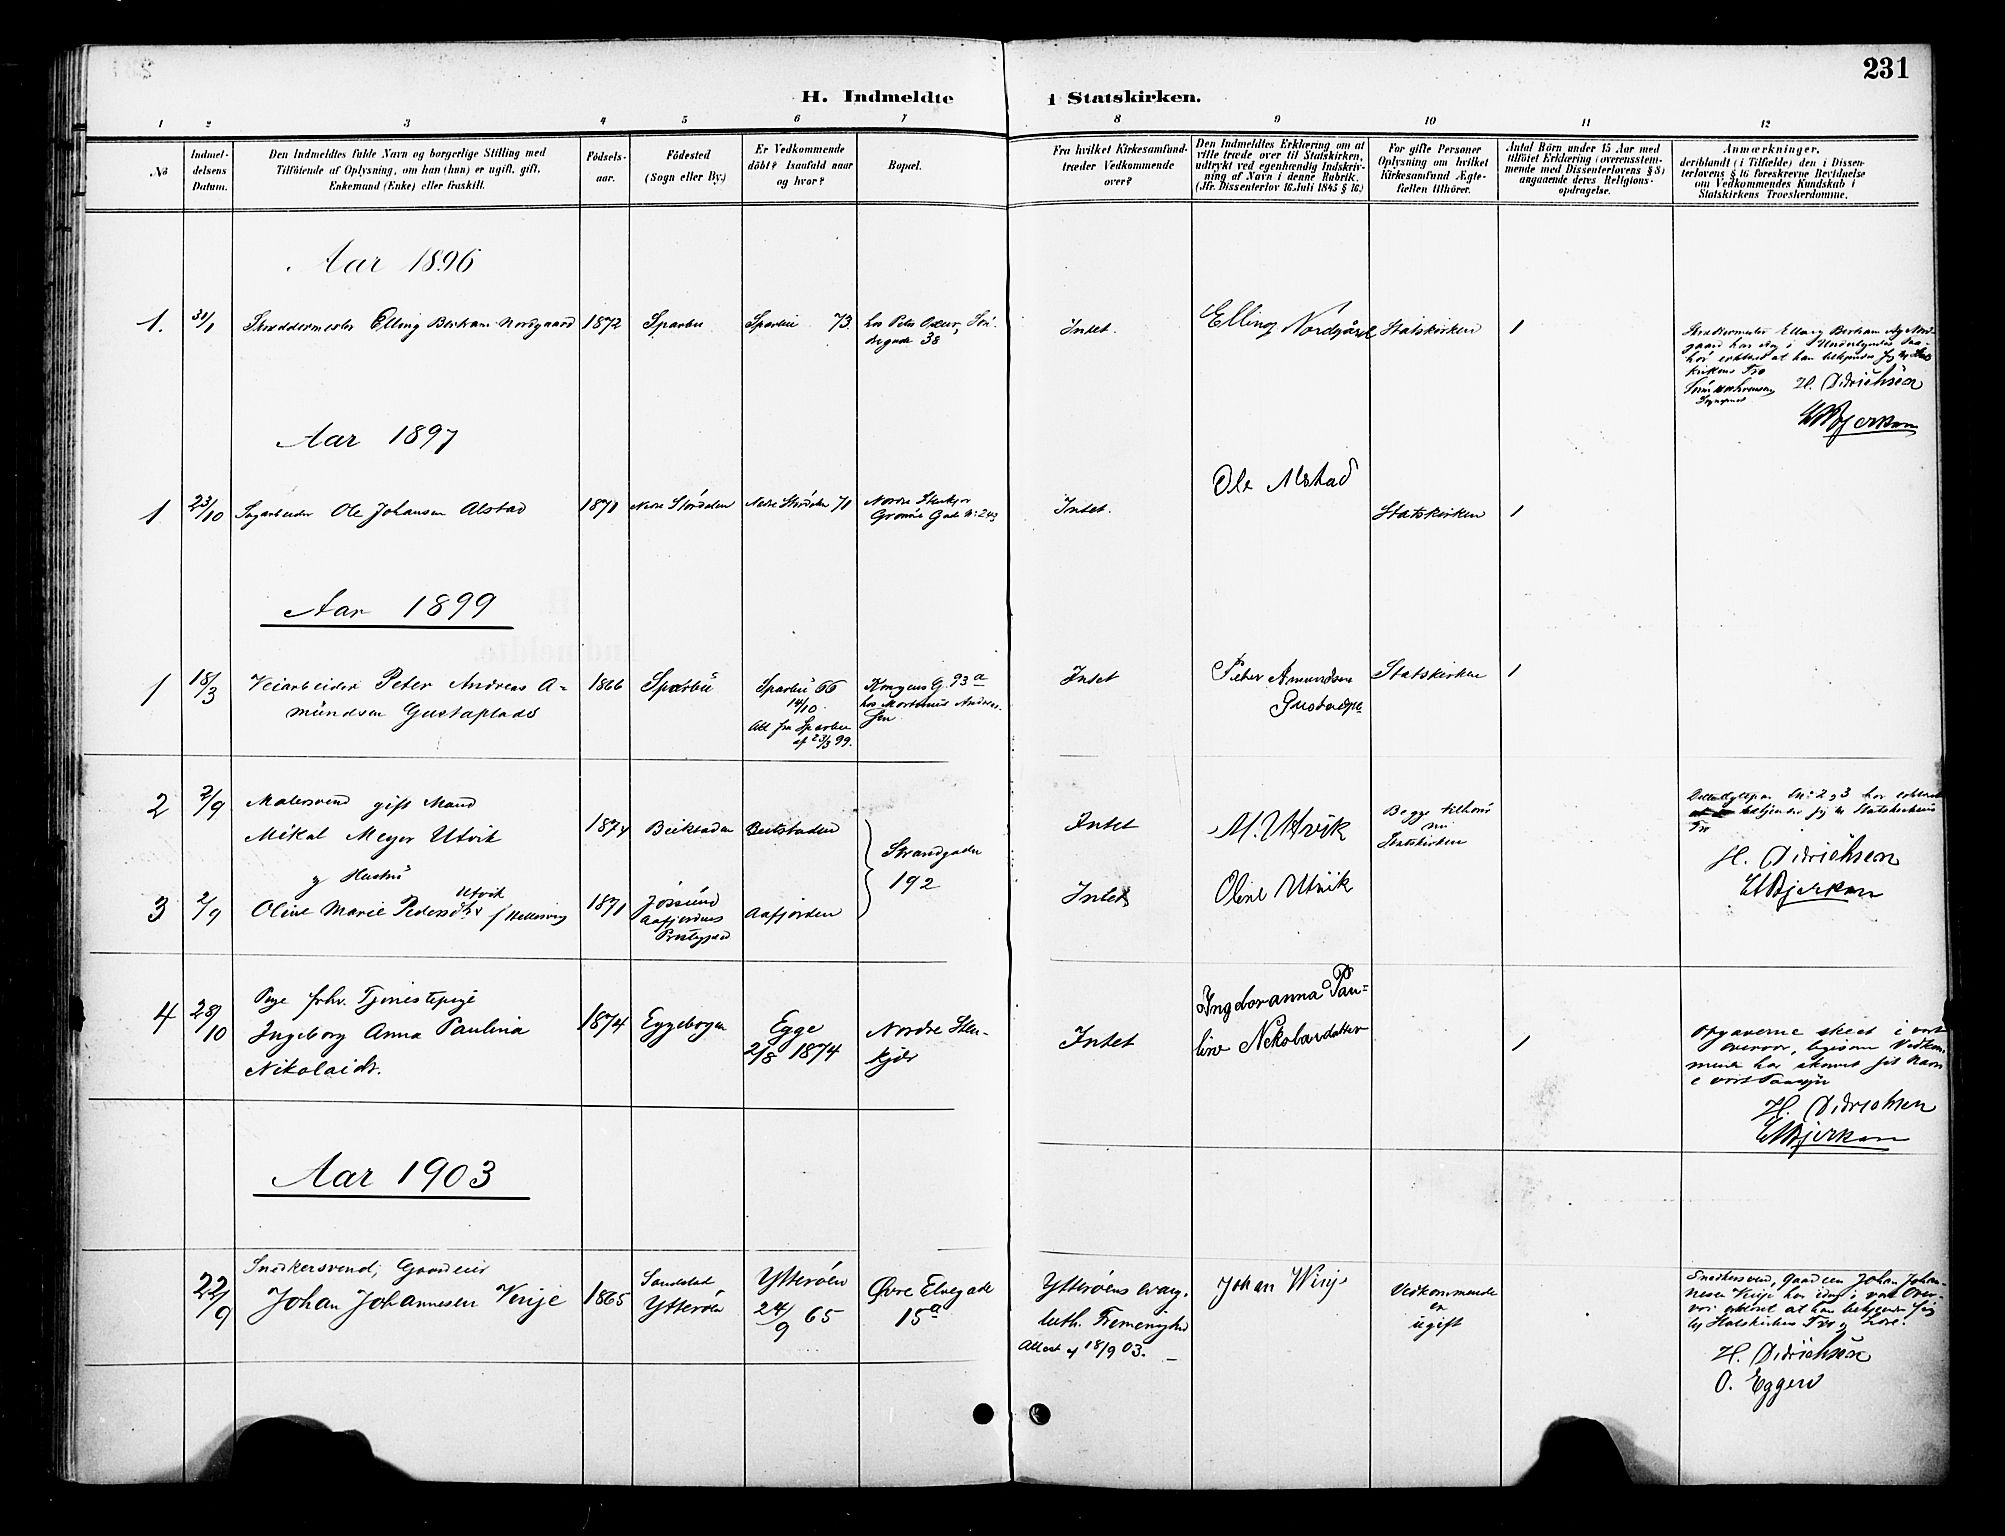 231
H. Indmeldte i Statskirken.
1 2 3 4 5 6 7 8 9 10 11 12
No
Indmel-
delsens
Datum.
Den Indmeldtes fulde Navn og borgerlige Stilling med
Tilföiende af Oplysning, om han (hun) er ugift, gift,
Enkemand (Enke) eller fraskilt.
Födsels-
aar.
Födested
(Sogn eller By.)
Er Vedkommende
döbt? Isaafald naar
og hvor?
Bopæl.
Fra hvilket Kirkesamfund
træder Vedkommende
over?
Den Indmeldtes Erklæring om at
ville træde over til Statskirken,
udtrykt ved egenhændig Indskriv-
ning af Navn i denne Rubrik.
(Jfr. Dissenterlov 16 Juli 1845 § 16.)
For gifte Personer
Oplysning om hvilket
Kirkesamfund Ægte-
fællen tilhörer.
Antal Börn under 15 Aar med
tilföiet Erklæring (overensstem-
mende med Dissenterlovens § 8)
angaaende deres Religions-
opdragelse.
Anmærkninger,
deriblandt (i Tilfælde) den i Dissen-
terlovens § 16 foreskrevne Bevidnelse
om Vedkommendes Kundskab i
Statskirkens Troeslærdomme.
Aar 1896
1. 31/1 Skræddermester Elling Bertram Nordgaard 1872 Sparbu Sparbu 73
38
Intet.
Elling Nordgård
Statskirken 1
H. Didrichsen
Bjerkan
Aar 1897
1 23/10 Sagarbeider Ole Johansen Alstad 1871 Nedre Stördalen Nedre Stördalen 71
Nordre Stenkjer
Intet.
Ole Alstad
Statskirken 1
Aar 1899
1 18/3 Veiarbeider Peter Andreas A-
mundsen
1866 Sparbu
Sparbu 66
14/10
Att. fra Sparbu
af 23/3 99.
Kongens G. 93 a
hos Martinus Andrea-
sen
Intet
Peter Amundsen
Statskirken 1
2 2/9 Malersvend gift Mand
Mikal Meyer Utvik
1874 Beitstaden Beitstaden
Strandgaden
192
Intet
M. Utvik
Begge tilhører
nu
Statskirken
H. Didrichsen
Bjerkan
og Hustru
3 2/9 Oline Marie Pedersdtr Utvik
1871 Jössund
Aafjordens
Præstegjeld
Aafjorden
Intet
Oline Utvik
4 28/10 Pige, forhv. Tjenestepige
Ingeborg Anna Paulina
Nikolaidr.
1874 Eggebogen
Egge
2/8 1874
Nordre Sten-
kjær
Intet
1
Opgaverne skeet i vort
Overvær, ligesom Vedkom-
mende har skrevet sit Navn
i vort Paasyn
H. Didrichsen
Bjerkan
Aar 1903
22/9 Snedkersvend, Gaardeier
Johan Johannesen Verije
1865 Sandstad
Ytterøen
Ytterøen
24/9 65
Øvre Elvegade
15 a
Ytterøens evang.
luth. Fremenighed
Attest af 18/9 03.
Johan
Vedkommende
er
ugift
Snedkersvend, gaardeier Johan Johan-
nesen Verije har idag i vort Over-
vær erklæret at han bekjender sig
til Statskirkens Tro og Lære.
H. Didrichsen
O. Eggen